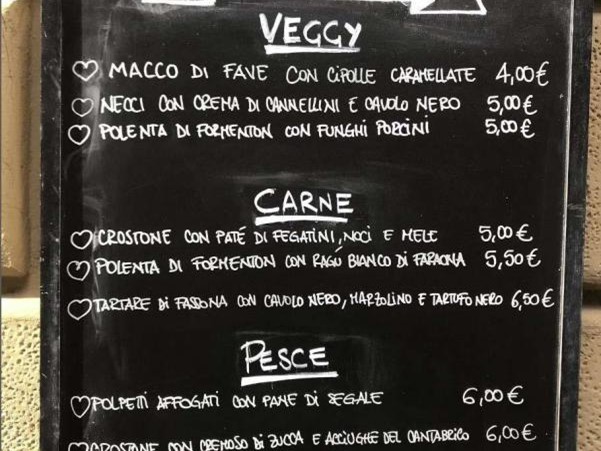 VEGGY
MACCO DI FAVE CON CIPOLLE CARAMELLATE 4,00€
NECCI CON CREMA DI CANNELLINI E CAVOLO NERO 5,00€
POLENTA DI FORMENTON CON FUNGHI PORCINI 5,00€
CARNE
CROSTONE CON PATÉ DI FEGATINI, NOCI E MELE 5,00€
POLENTA DI FORMENTON CON RAGÙ BIANCO DI FARAONA 5,50€
TARTARE DI FASSONA CON CAVOLO NERO, MARZOLINO E TARTUFO NERO 6,50€
PESCE
POLPETTI AFFOGATI CON PANE DI SEGALE 6,00€
CROSTONE CON CREMOSO DI ZUCCA E ACCIUGHE DEL CANTABRICO 6,00€